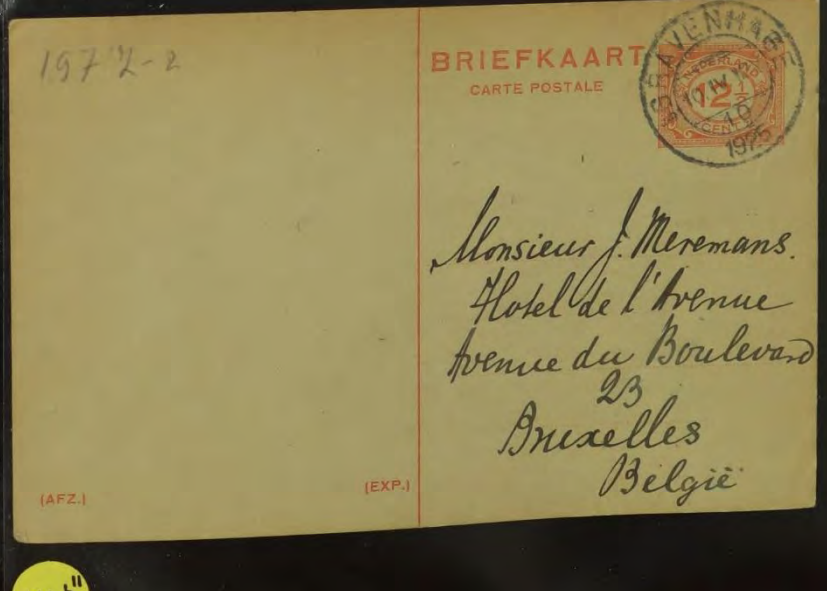 1972-2
BRIEFKAART
CARTE POSTALE
'S GRAVENHAGE
NEDERLAND
12 1/2
CENT
10 IV
10
1925
Monsieur J. Meremans.
Hotel de l'Avenue
Avenue du Boulevard
23
Bruxelles
België
(AFZ.)
(EXP.)